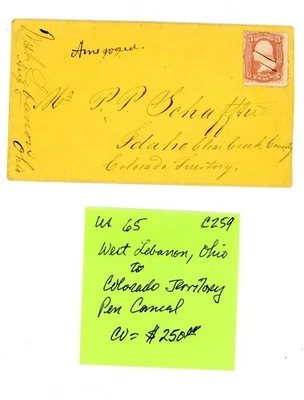 West Lebanon
Aug 5
Ohio
Mr P. P. Schaffer
Idaho Clear Creek County
Colorado Territory.
US 65 C259
West Lebanon, Ohio
to
Colorado Territory
Pen Cancel
CV = $250.00